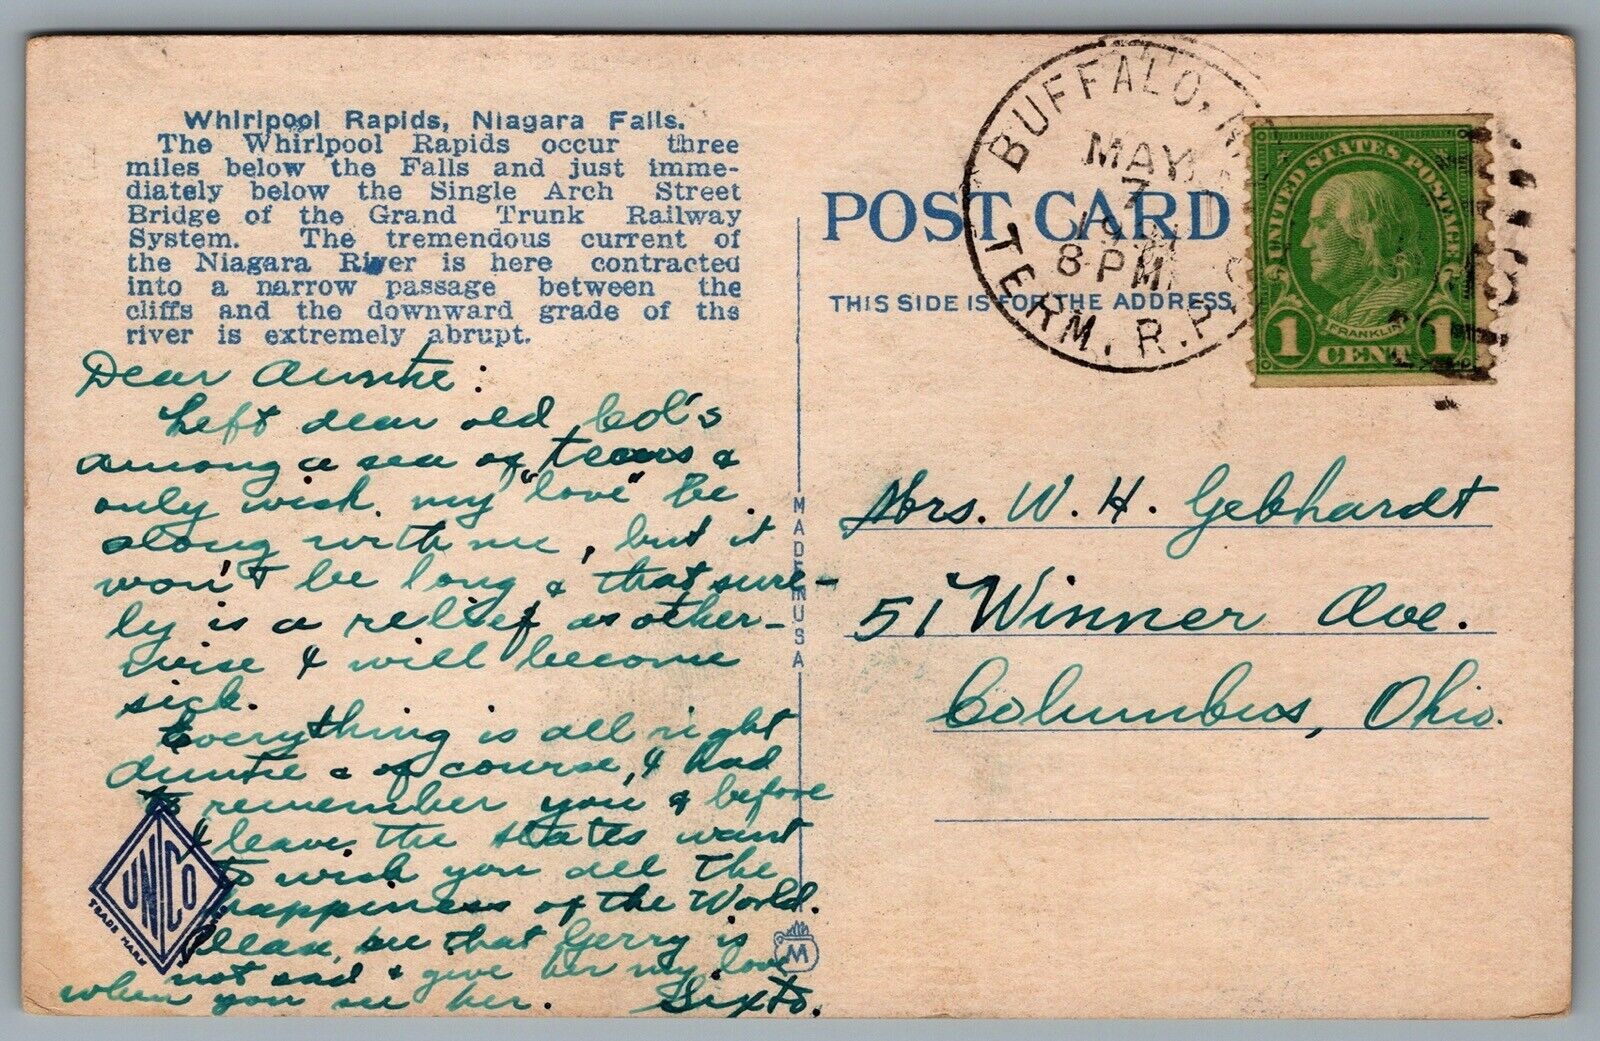 Whirlpool Rapids, Niagara Falls.
The Whirlpool Rapids occur three
miles below the Falls and just imme-
diately below the Single Arch Street
Bridge of the Grand Trunk Railway
System. The tremendous current of
the Niagara River is here contracted
into a narrow passage between the
cliffs and the downward grade of the
river is extremely abrupt.
Dear Auntie:
Left dear old Col's
among a sea of tears &
only wish my "love" be
along with me, but it
won't be long & that sure-
ly is a relief as other-
wise I will become
sick.
Everything is all right
Auntie & of course, I had
to remember you & before
I leave the States want
to wish you all the
happiness of the World.
Please, see that Gerry is
not sad & give her my love
when you see her. Sixto.
UNICO
TRADE MARK
MADE IN USA
M
POST CARD
THIS SIDE IS FOR THE ADDRESS
BUFFALO, N.
MAY
7
8 PM
TERM. R.P.
UNITED STATES POSTAGE
FRANKLIN
1 CENT 1
Mrs. W. H. Gebhardt
51 Winner Ave.
Columbus, Ohio.